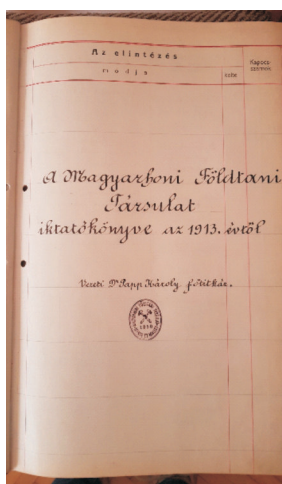 Az elintézés
módja
ideje
Kapcsolt
számok
A Magyarhoni Földtani
Társulat
iktatókönyve az 1913. évtől
Vezeti Dr Papp Károly főtitkár.
1850